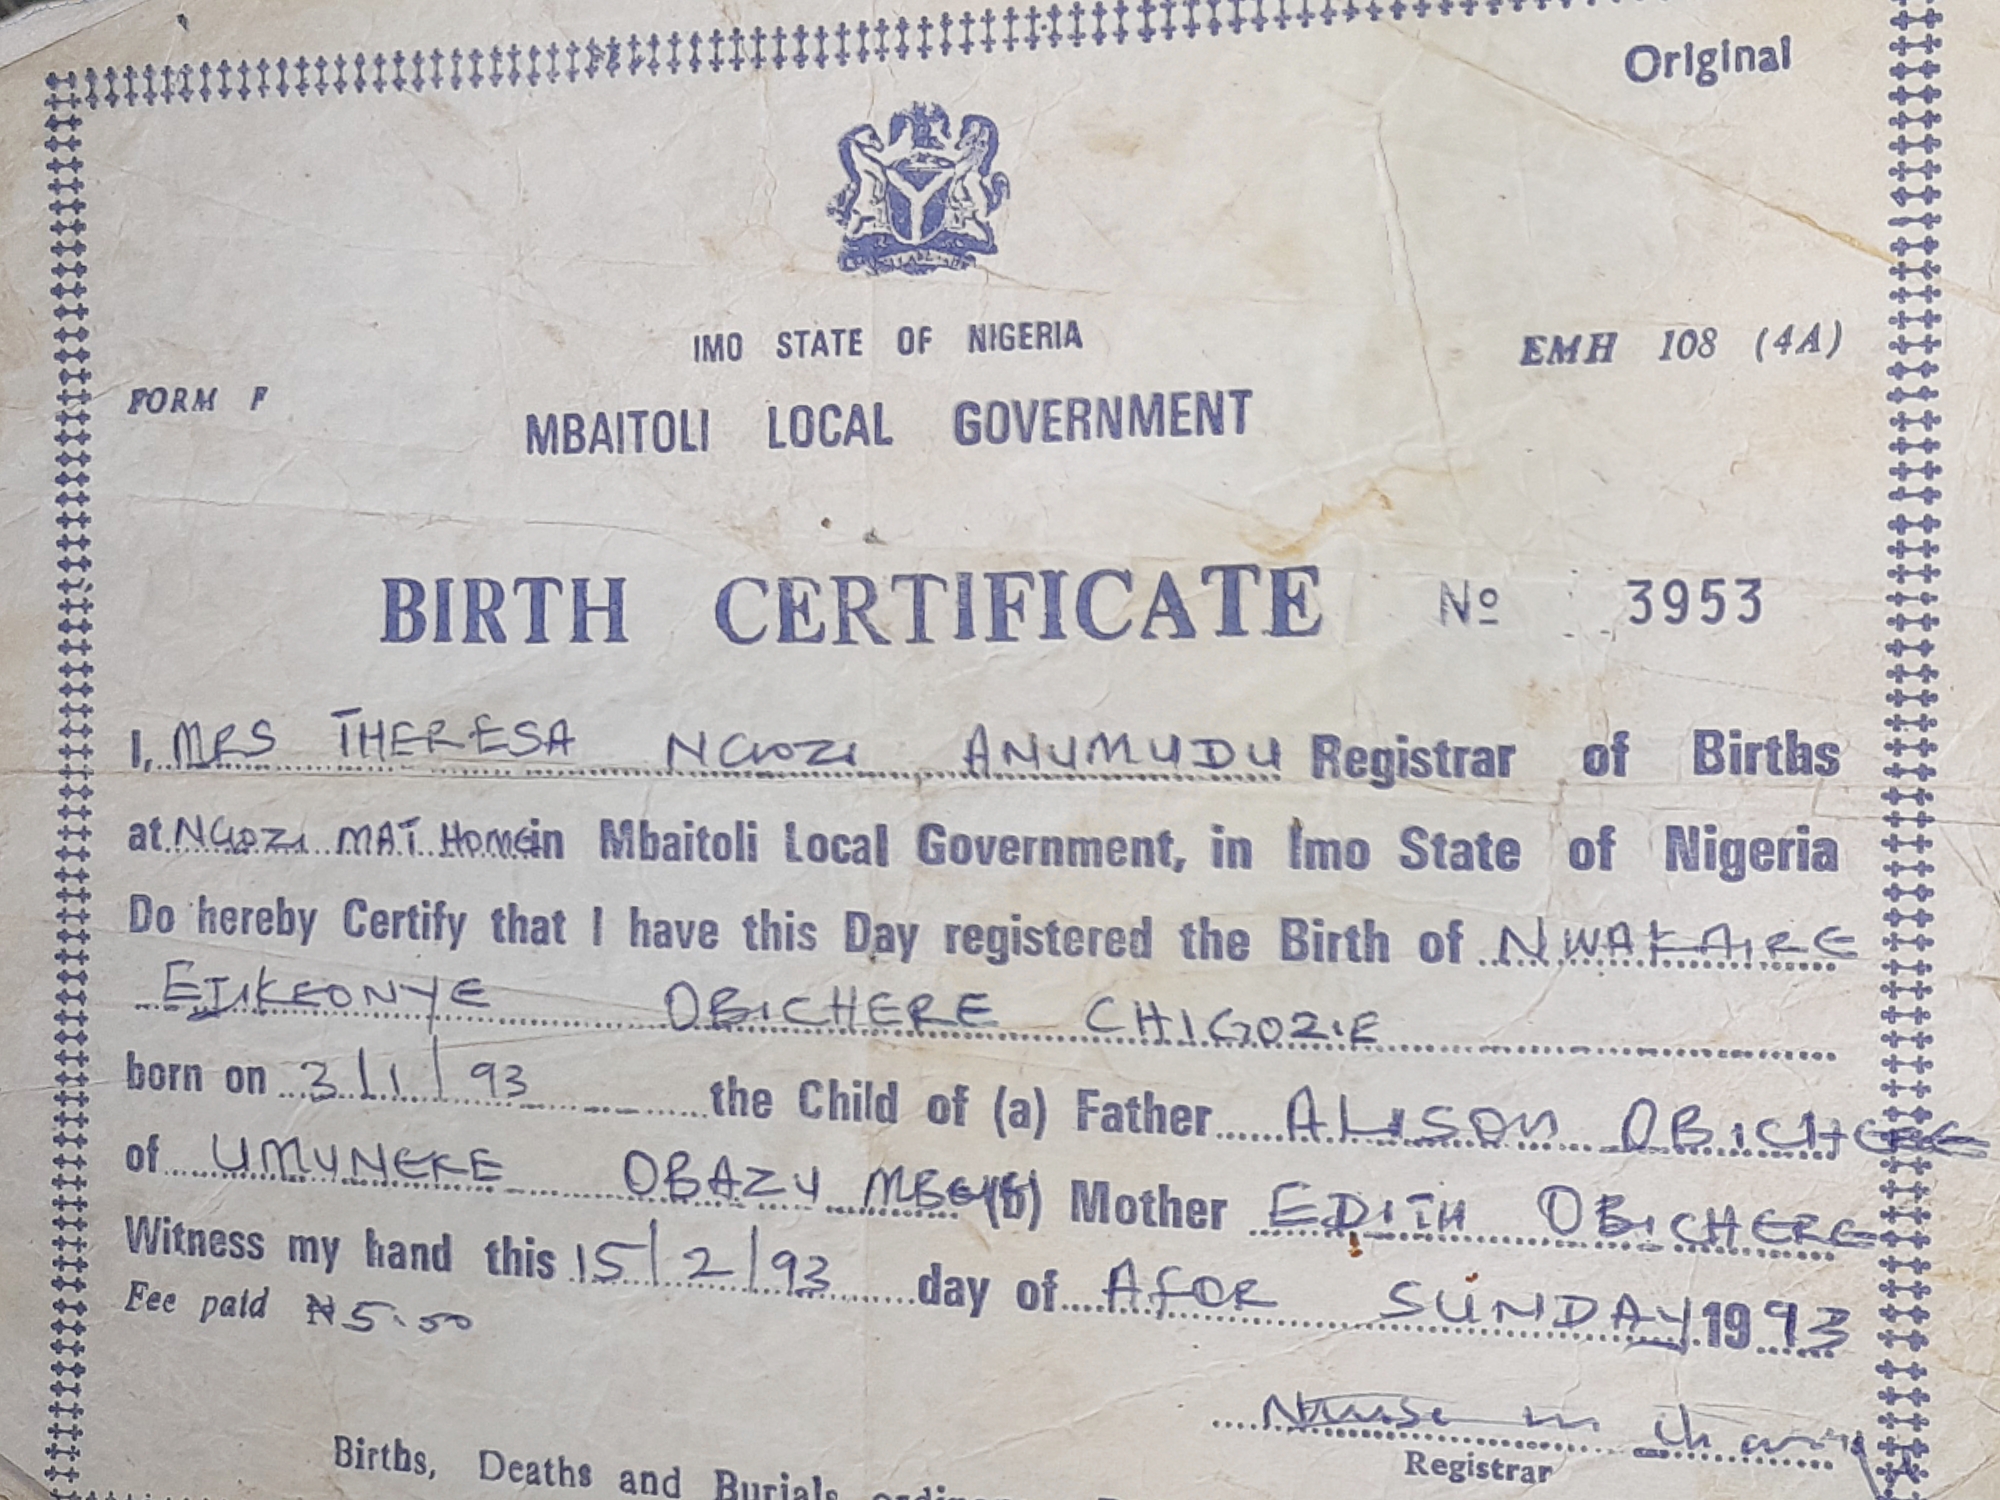 Original
IMO STATE OF NIGERIA
EMH 108 (4A)
FORM F
MBAITOLI LOCAL GOVERNMENT
BIRTH CERTIFICATE Nº 3953
I, MRS THERESA NGOZI ANUMUDU Registrar of Births
at NGOZI MAT HOME in Mbaitoli Local Government, in Imo State of Nigeria
Do hereby Certify that I have this Day registered the Birth of NWAKAIRE
EJIKEONYE OBICHERE CHIGOZIE
born on 3/1/93 the Child of (a) Father ALISON OBICHERE
of UMUNEKE OBAZU (b) Mother EDITH OBICHERE
Witness my hand this 15/2/93 day of AFOR SUNDAY 1993
Fee paid ₦5.50
Nurse in charge
Registrar
Births, Deaths and Burials